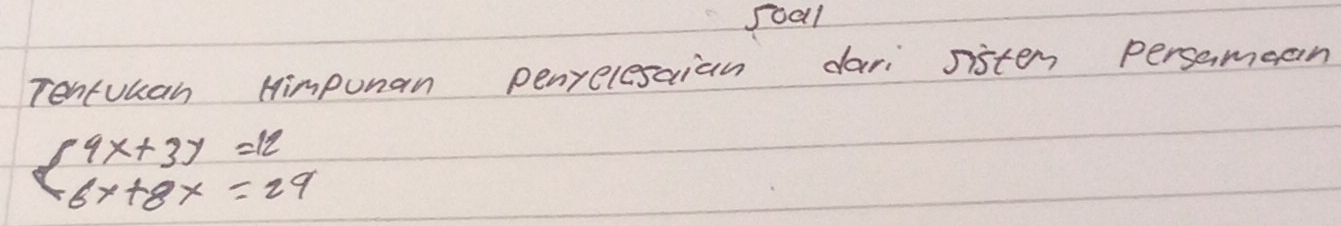 Soal
Tentukan Himpunan Penyelesaian dari sistem Persamaan
{ 4x+3y =12
6x+8x =24